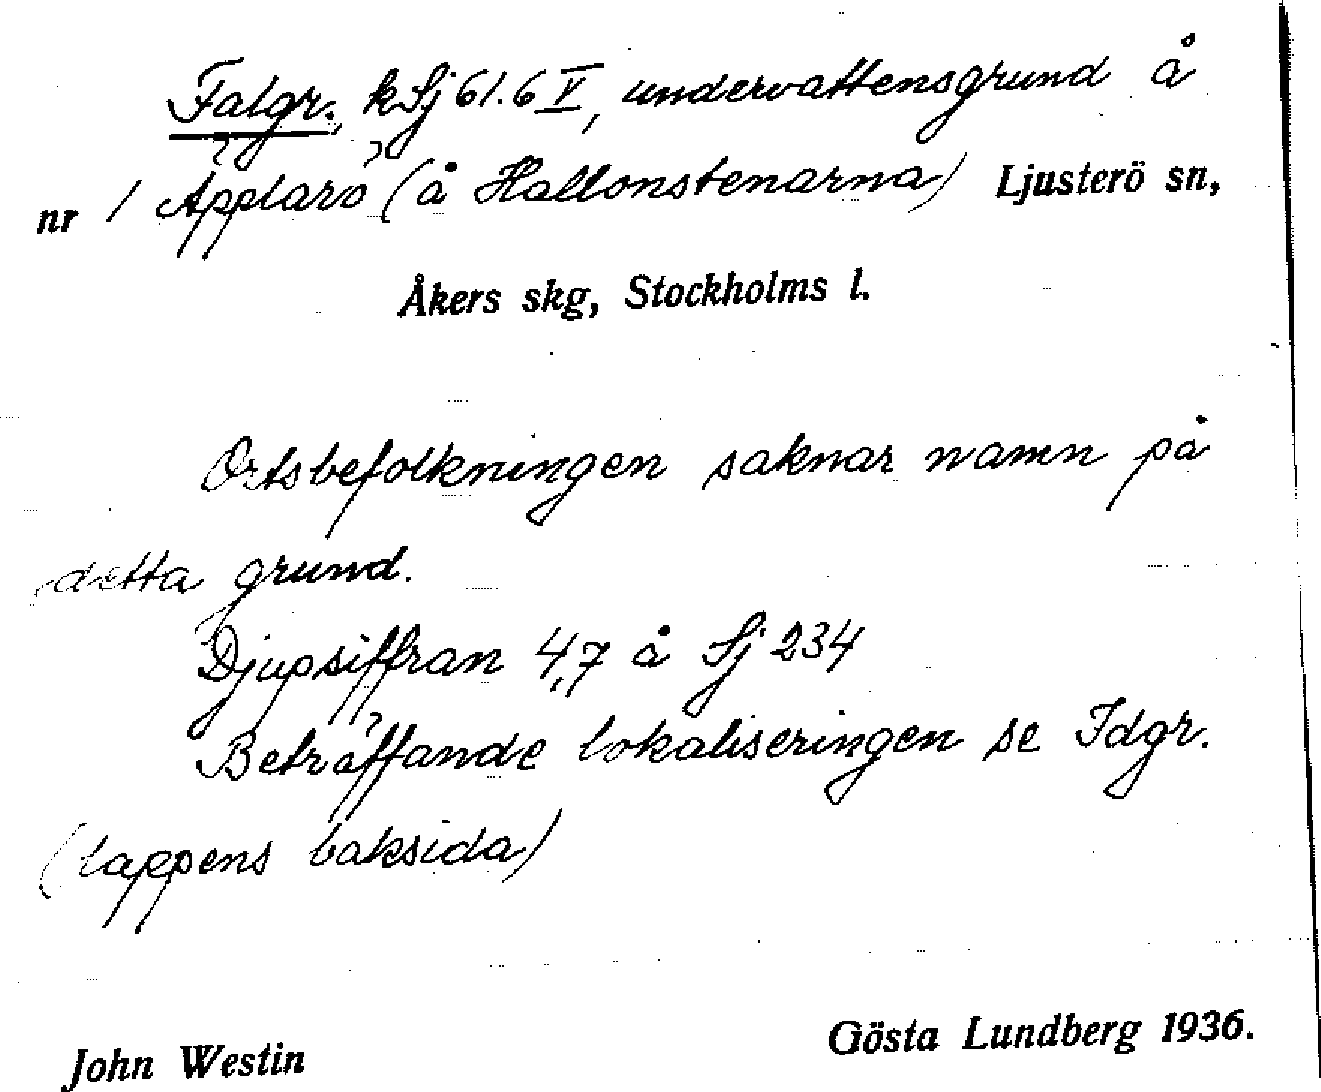 Falgr., kSj 61.6 V, undervattensgrund å
nr 1 Äpplarö (å Hallonstenarna) Ljusterö sn,
Åkers skg, Stockholms l.
Ortsbefolkningen saknar namn på
detta grund.
Djupsiffran 4,7 å Sj 234
Beträffande lokaliseringen se Idgr.
(lappens baksida)
John Westin
Gösta Lundberg 1936.